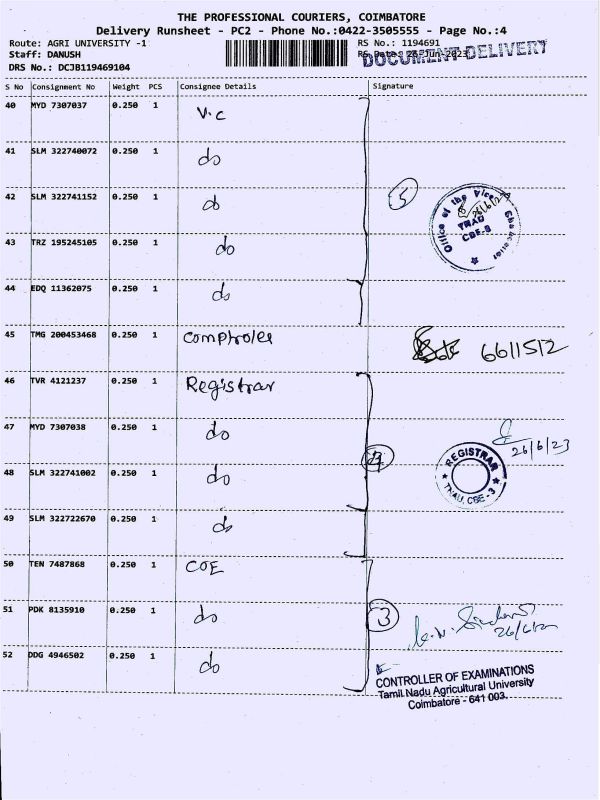 THE PROFESSIONAL COURIERS, COIMBATORE
Delivery Runsheet - PC2 - Phone No.:0422-3505555 - Page No.:4
Route: AGRI UNIVERSITY -1
RS No.: 1194691
Staff: DANUSH
RS Date: 26-Jun-2023
DOCUMENT DELIVERY
DRS No.: DCJB119469104
S No Consignment No Weight PCS Consignee Details Signature
40 MYD 7307037 0.250 1 V.C
41 SLM 322740072 0.250 1 do
42 SLM 322741152 0.250 1 do
5
Office of the Vice Chancellor
TNAU
CBE-3
43 TRZ 195245105 0.250 1 do
44 EDQ 11362075 0.250 1 do
45 TMG 200453468 0.250 1 Comptroller 6611512
46 TVR 4121237 0.250 1 Registrar
47 MYD 7307038 0.250 1 do
26/6/23
REGISTRAR
TNAU, CBE - 3
48 SLM 322741002 0.250 1 do
49 SLM 322722670 0.250 1 do
50 TEN 7487868 0.250 1 COE
51 PDK 8135910 0.250 1 do
3
52 DDG 4946502 0.250 1 do
CONTROLLER OF EXAMINATIONS
Tamil Nadu Agricultural University
Coimbatore - 641 003.